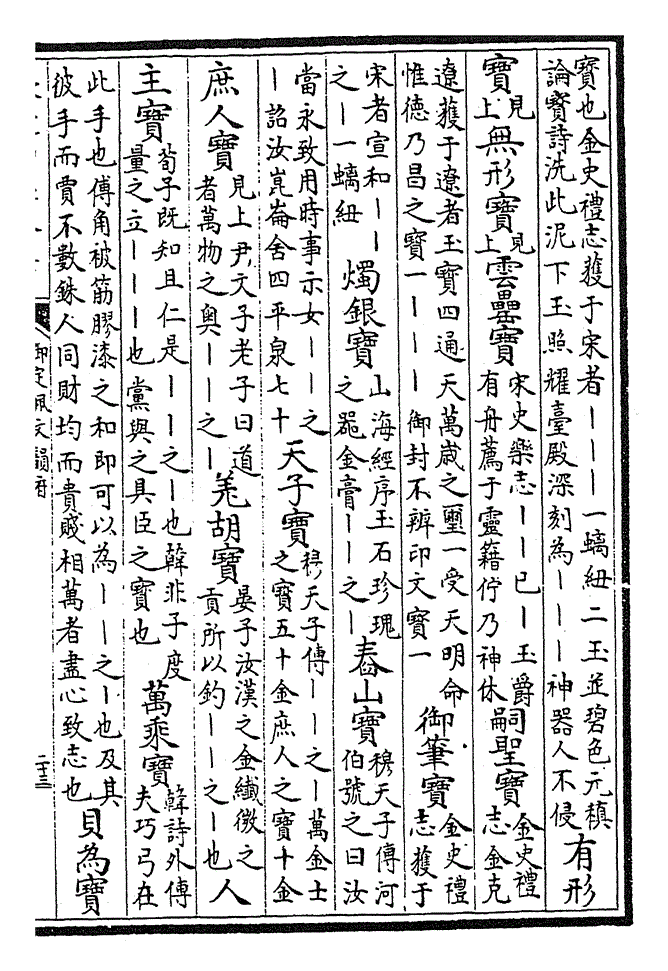 寶也金史禮志獲于宋者丨丨丨一螭紐二玉並碧色元稹論寶詩洗此泥下玉照耀臺殿深刻為丨丨丨神器人不侵有形
寶見上無形寶見上雲罍寶宋史樂志丨丨已丨玉爵有舟薦于靈籍佇乃神休嗣聖寶金史禮志金克
遼獲于遼者玉寶四通天萬歲之璽一受天明命惟德乃昌之寶一丨丨丨御封不辨印文寶一御筆寶金史禮志獲于
宋者宣和丨丨之丨一螭紐燭銀寶山海經序玉石珍瑰之器金膏丨丨之丨舂山寶穆天子傳河伯號之曰汝
當永致用時事示女丨丨之丨詔汝崑崙舍四平泉七十天子寶穆天子傳丨丨之丨萬金士之寶五十金庶人之寶十金
庶人寶見上尹文子老子曰道者萬物之奧丨丨之丨羌胡寶晏子汝漢之金纖微之貢所以釣丨丨之丨也人
主寶荀子既知且仁是丨丨之丨也韓非子度量之立丨丨丨也黨與之具臣之寶也萬乘寶韓詩外傳夫巧弓在
此手也傅角被筋膠漆之和即可以為丨丨之丨也及其彼手而賣不數銖人同財均而貴賤相萬者盡心致志也貝為寶
御定佩文韻府
二十三